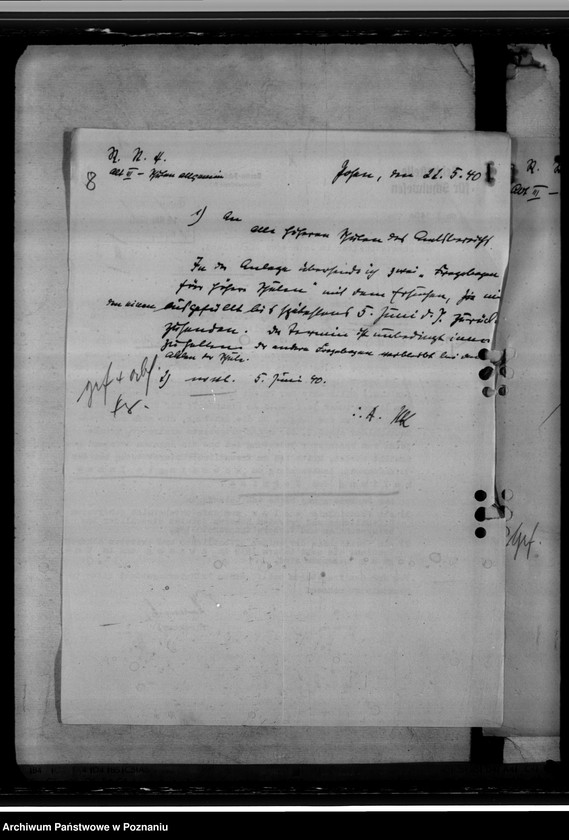 R. N. 4.
Abt III – Schulen allgemein
Posen, den 22. 5. 40
8
1) An
alle höheren Schulen des Amtsbereichs
In der Anlage übersende ich zwei „Fragebogen
für höhere Schulen" mit dem Ersuchen, sie mir
den einen ausgefüllt bis spätestens 5. Juni d. J. zurück
zusenden. Der Termin ist unbedingt inne-
zuhalten. Der andere Fragebogen verbleibt bei den
Akten der Schule.
2) 5. Juni 40.
i. A.
gef.
Archiwum Państwowe w Poznaniu